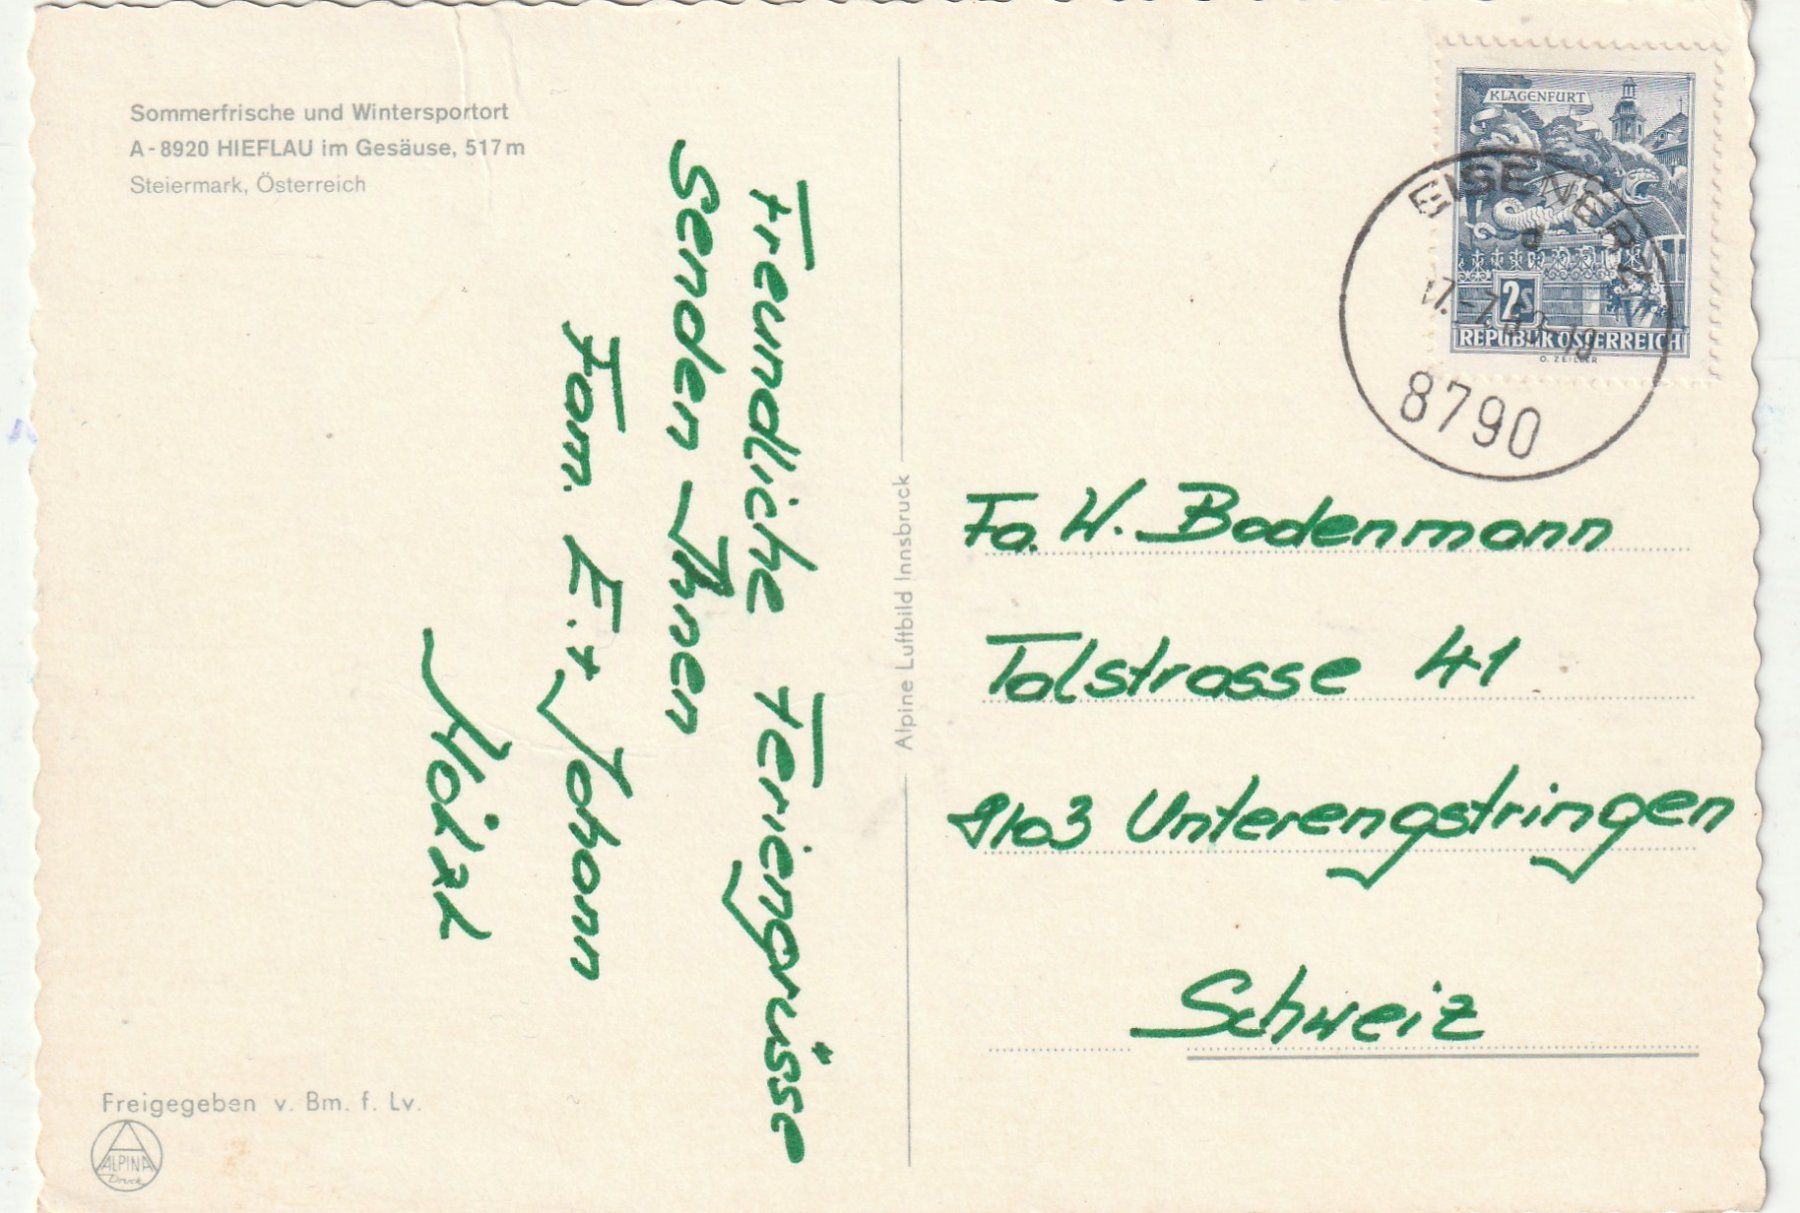 Sommerfrische und Wintersportort
A-8920 HIEFLAU im Gesäuse, 517 m
Steiermark, Österreich
Freundliche Feriengrüsse
senden Ihnen
Fam. E. + Johann
Hölzl
Freigegeben v. Bm. f. Lv.
ALPINA
Druck
Alpine Luftbild Innsbruck
KLAGENFURT
2S
REPUBLIK ÖSTERREICH
O. ZEILLER
EISENERZ
8790
Fa. W. Bodenmann
Talstrasse 41
8103 Unterengstringen
Schweiz